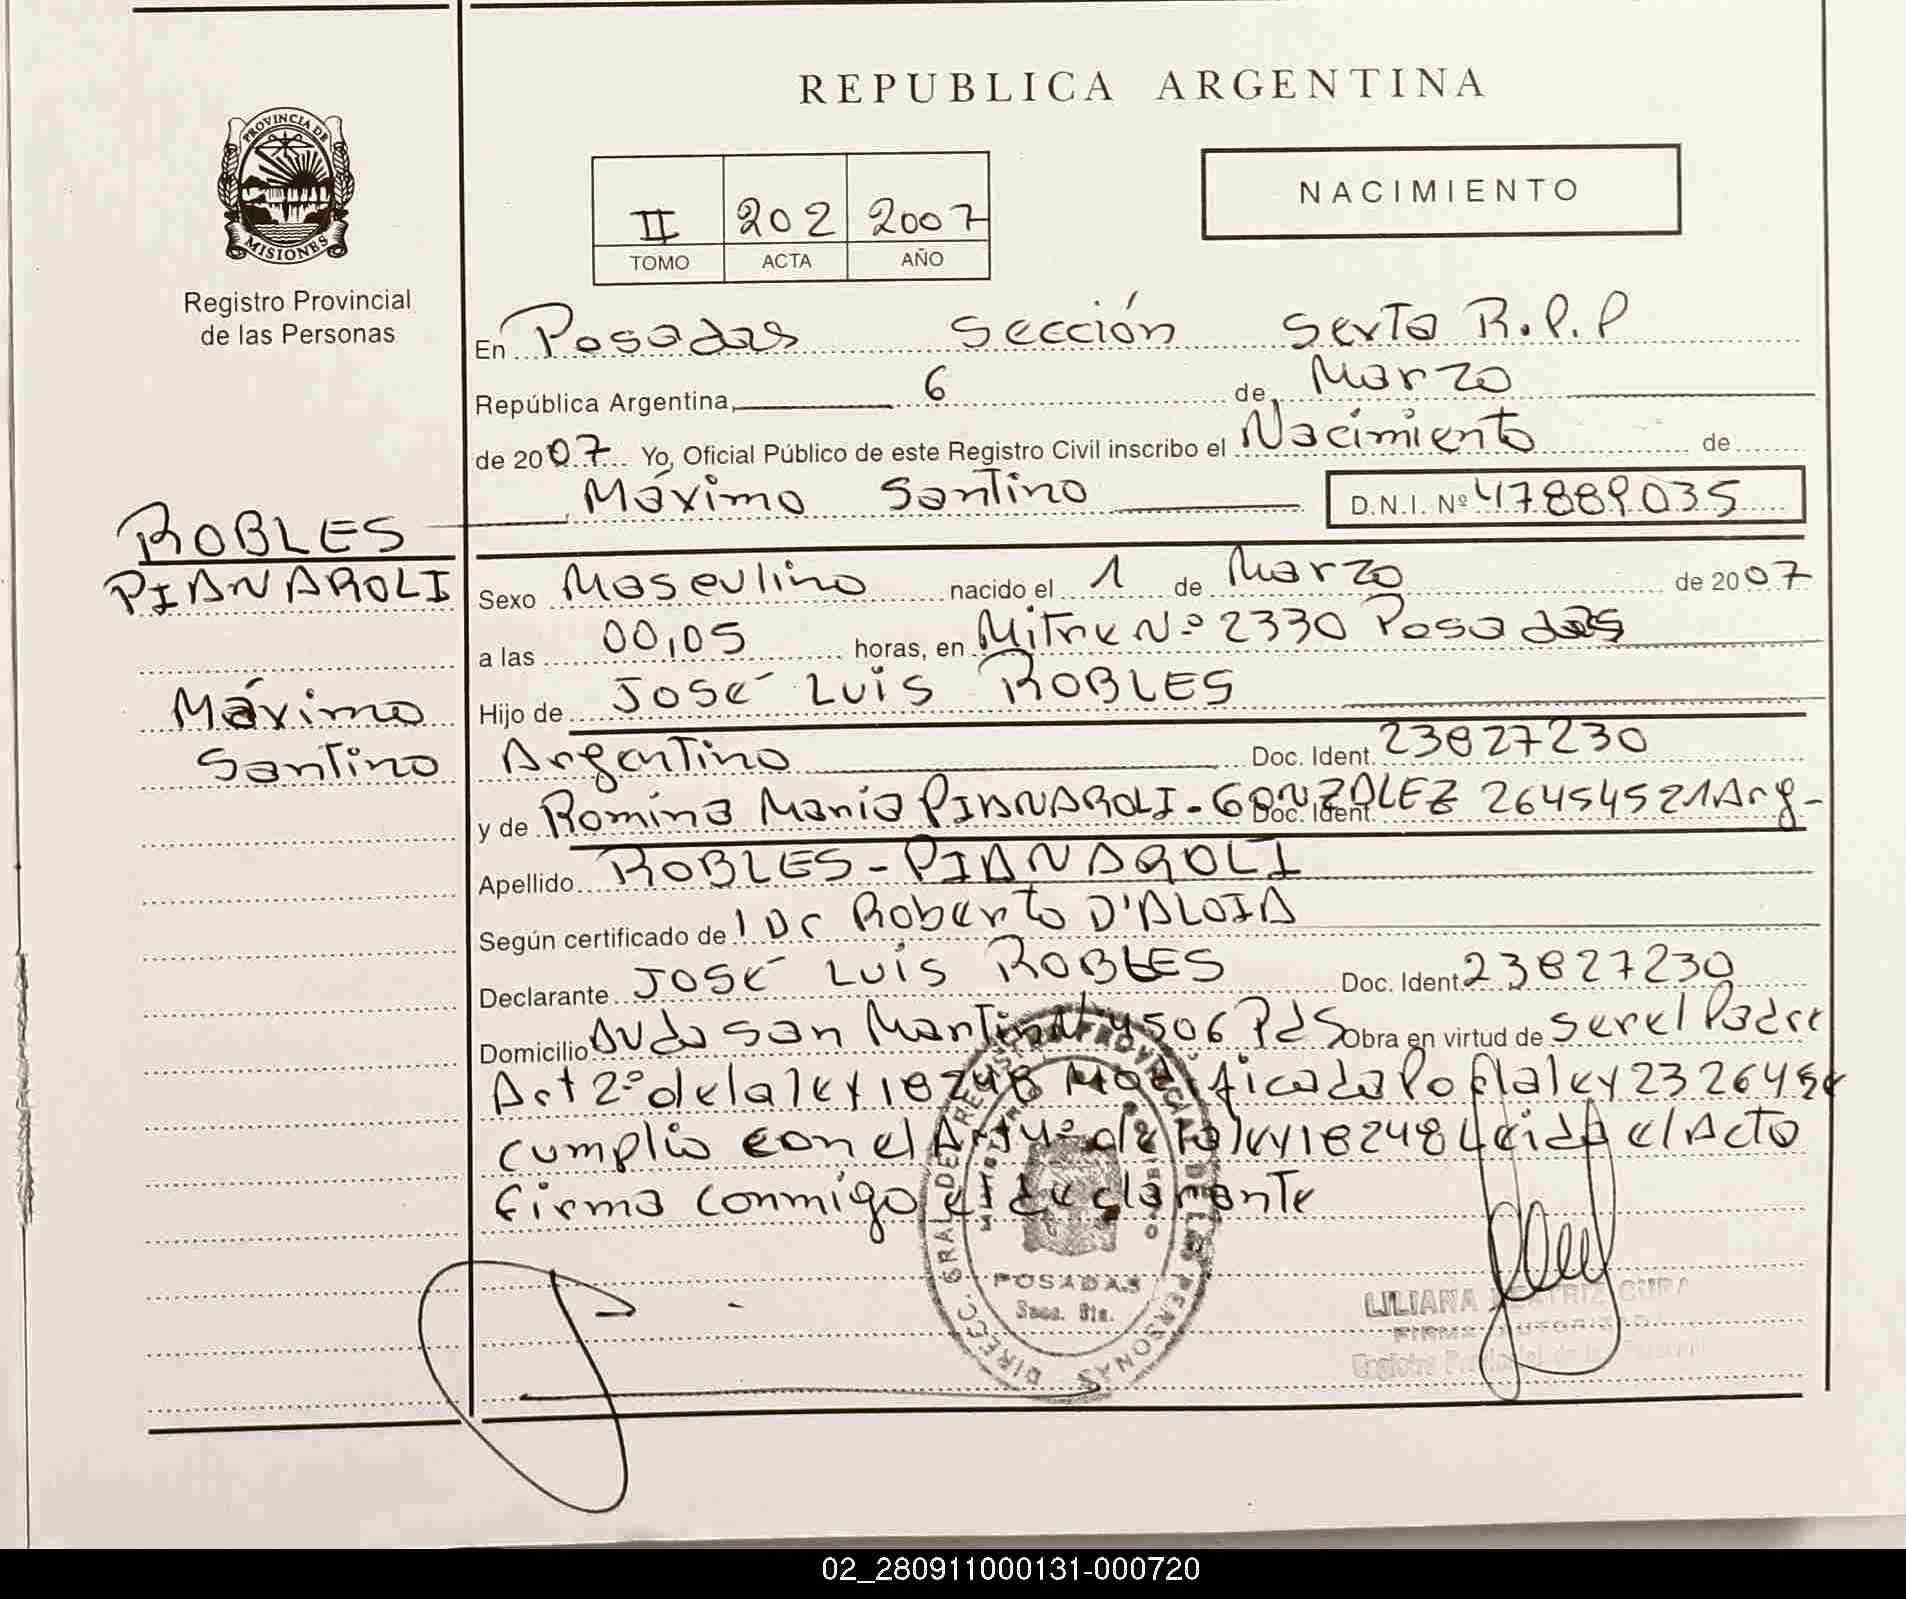 REPUBLICA ARGENTINA
PROVINCIA DE
MISIONES
Registro Provincial
de las Personas
NACIMIENTO
II 202 2007
TOMO ACTA AÑO
En Posadas Sección Sexta R.P.P
República Argentina, 6 de Marzo
de 2007 Yo, Oficial Público de este Registro Civil inscribo el Nacimiento de
Máximo Santino D.N.I. Nº 47889035
ROBLES
PIANAROLI
Máximo
Santino
Sexo Masculino nacido el 1 de Marzo de 2007
a las 00,05 horas, en Mitre Nº 2330 Posadas
Hijo de José Luis ROBLES
Argentino Doc. Ident. 23827230
y de Romina Maria PIANAROLI - GONZALEZ Doc. Ident. 26454521 Arg-
Apellido ROBLES - PIANAROLI
Según certificado de l Dr Roberto D'ALOIA
Declarante José Luis ROBLES Doc. Ident. 23827230
Domicilio Avda San Martin Nº 4506 Pds Obra en virtud de ser el Padre
Art 2º de la ley 18248 Modificada Por la ley 23264 se
cumplio con el Art 4º de la ley 18248 Leida el Acto
firma conmigo el declarante
DIRECC. GRAL. DEL REGISTRO PROVINCIAL DE LAS PERSONAS
POSADAS
Secc. 6ta.
LILIANA BEATRIZ
FIRMA AUTORIZADA
Registro Provincial de las Personas
02_280911000131-000720